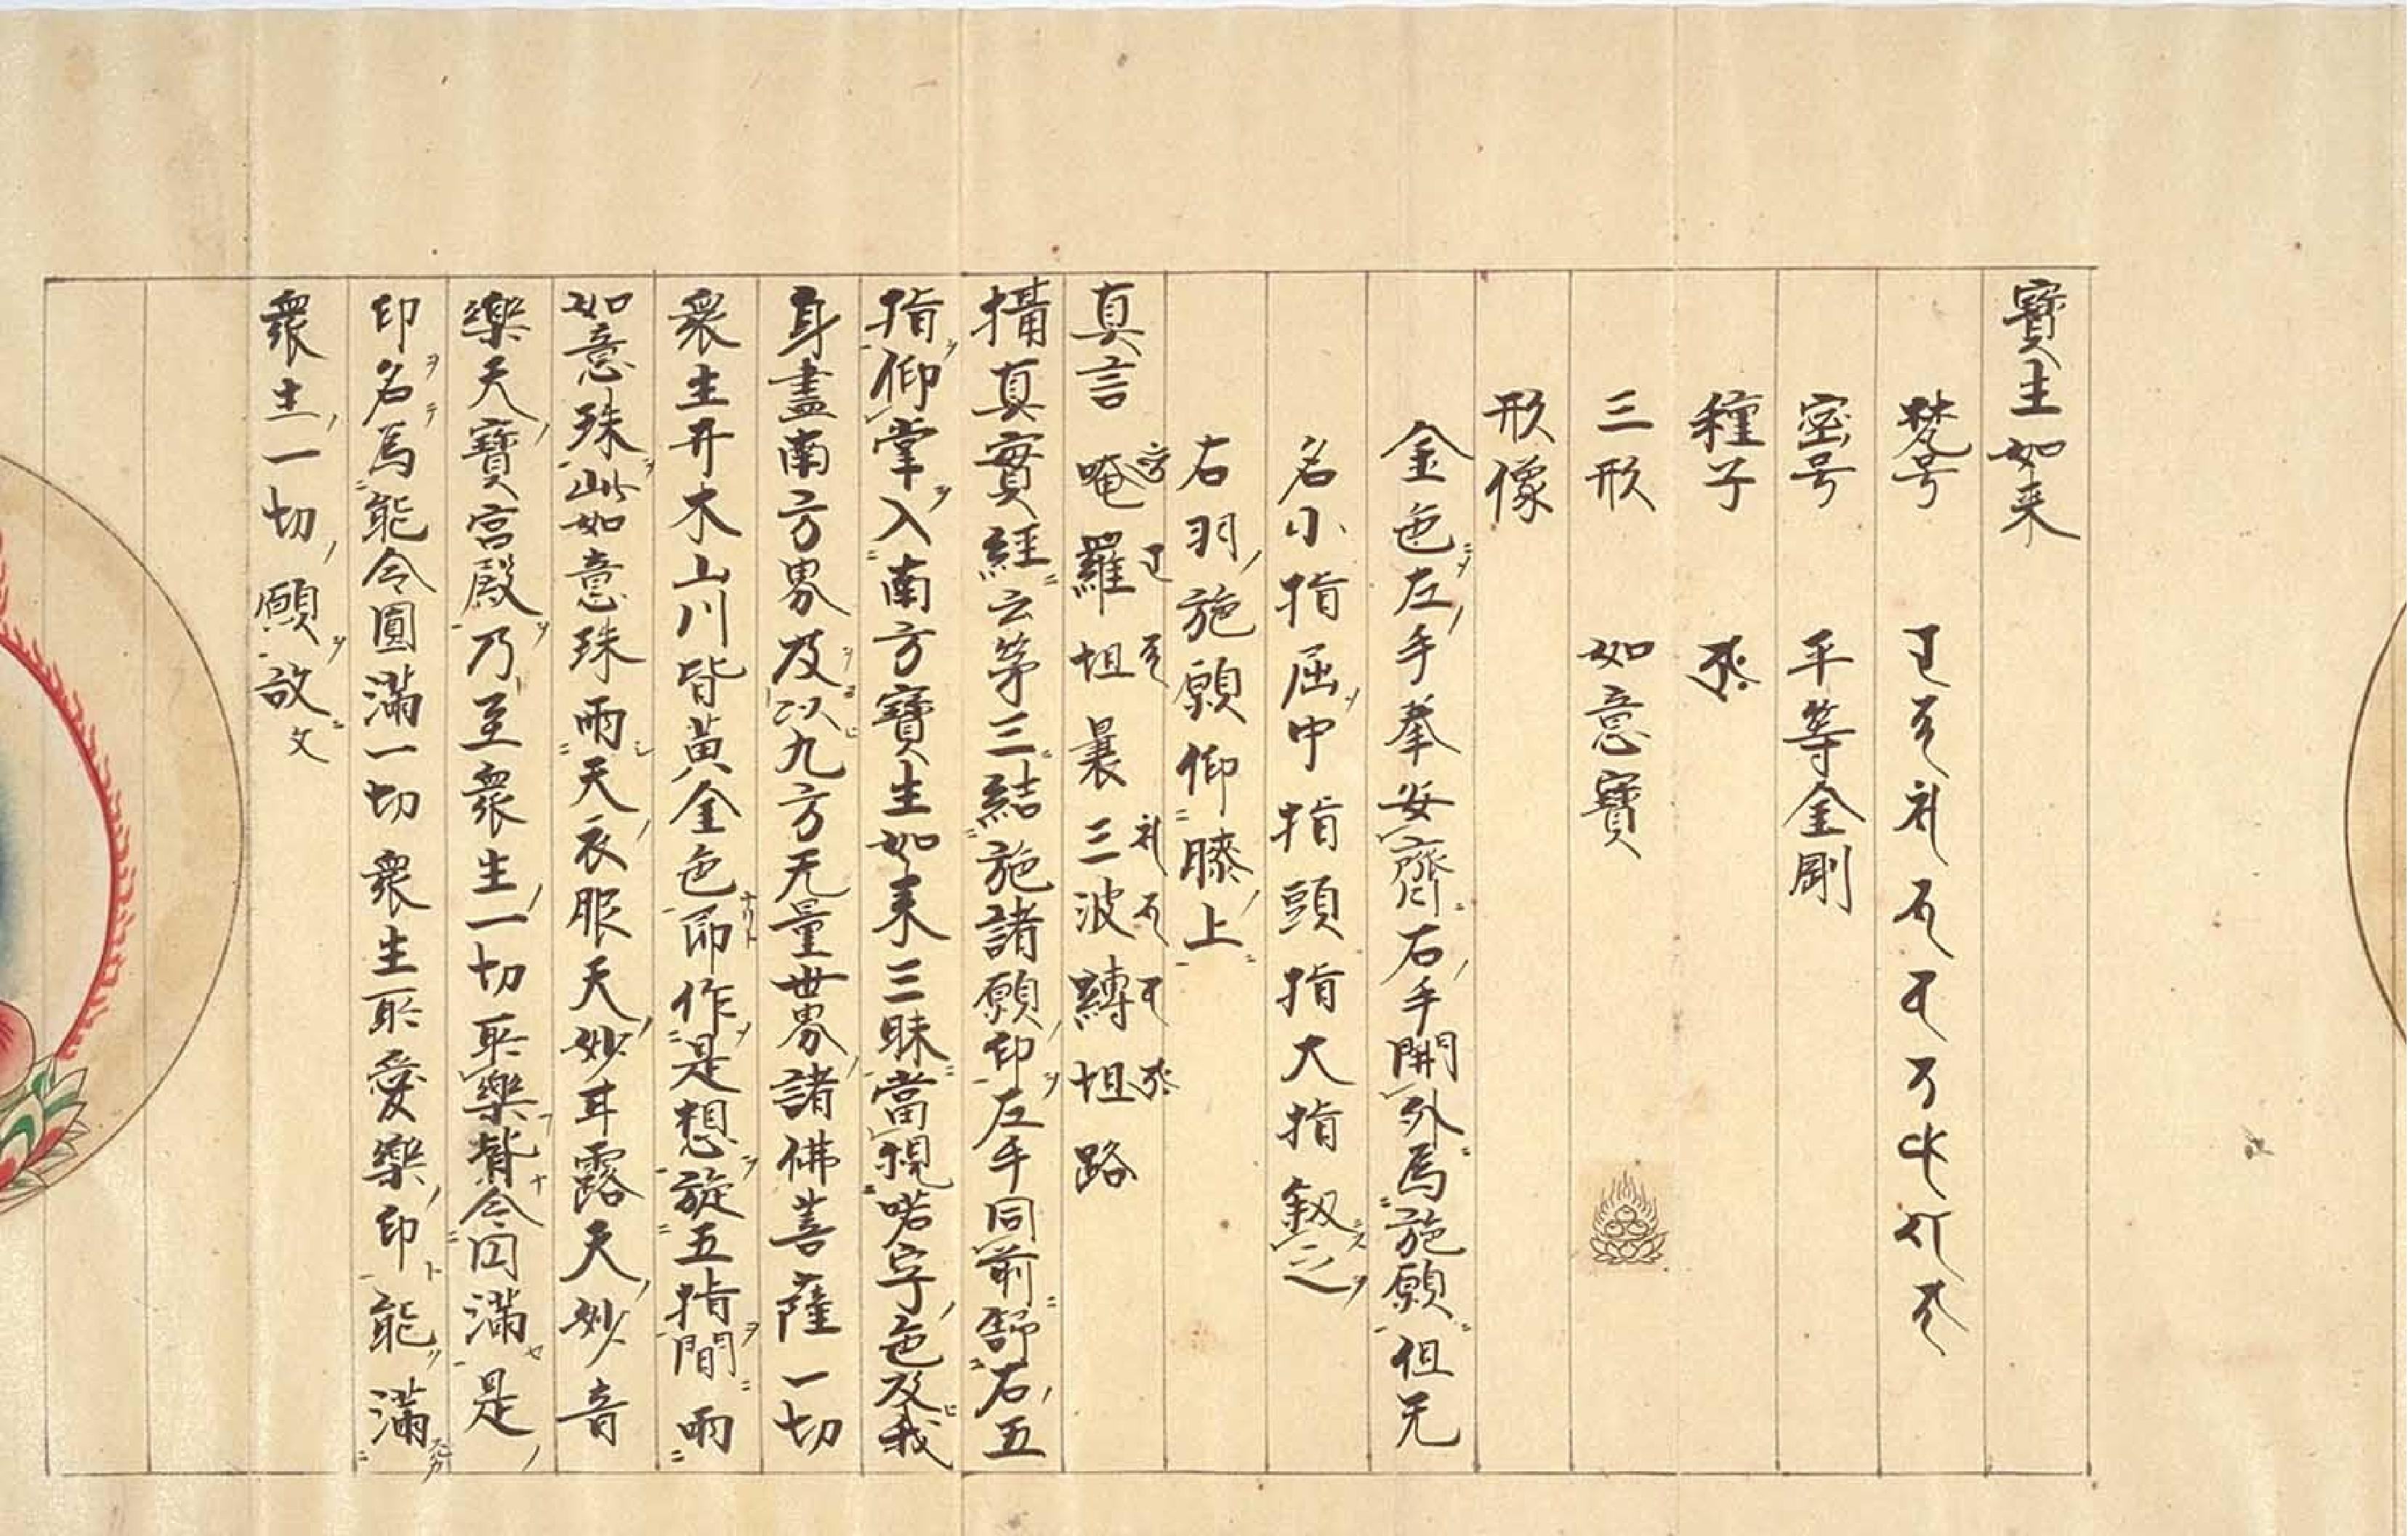 寶生如来
梵号
密号 平等金剛
種子
三形 如意寶
形像
金色左手拳安齊右手開外為施願但无
名小指屈中指頭指大指釼之
右羽施願仰膝上
真言 唵羅怛曩三波縛怛路
攝真實經云第三結施諸願印左手同前舒右五
指仰掌入南方寶生如来三昧當視喏字色及我
身盡南方界及以九方无量世界諸佛菩薩一切
衆生卉木山川皆黄金色即作是想旋五指間雨
如意珠此如意珠雨天衣服天妙甘露天妙音
樂天寶宮殿乃至衆生一切所樂皆令圓滿是
印名為能令圓滿一切衆生所愛樂印能滿
衆生一切願故文